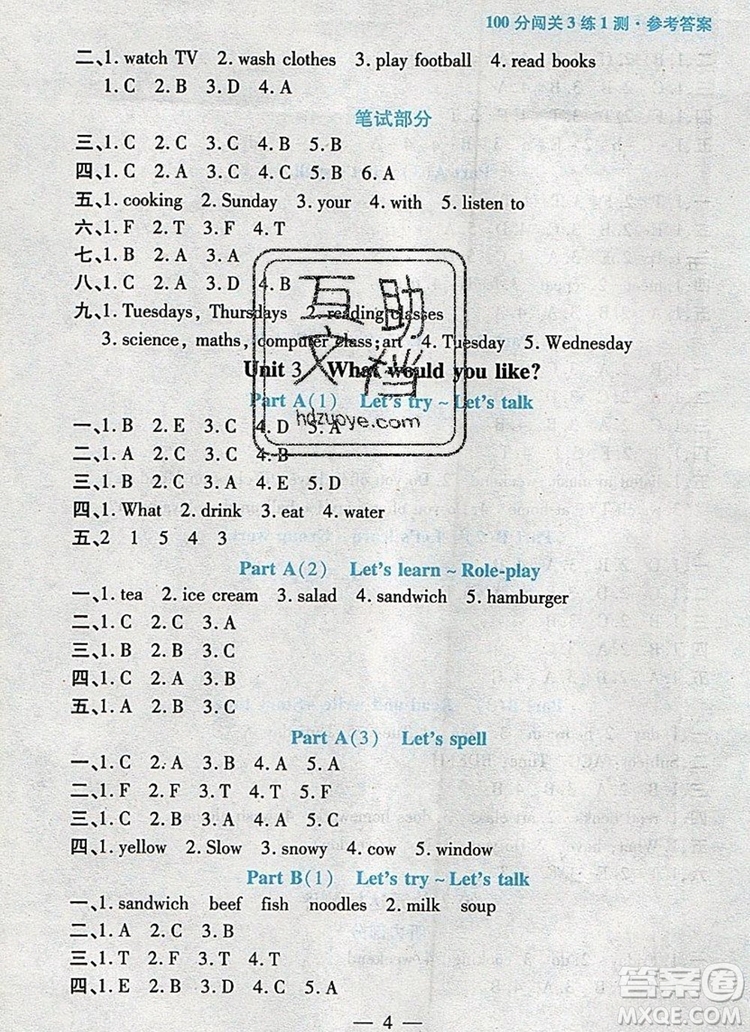 100分闯关3练1测·参考答案
二、1. watch TV 2. wash clothes 3. play football 4. read books
1. C 2. B 3. D 4. A
笔试部分
三、1. C 2. C 3. C 4. B 5. B
四、1. C 2. A 3. C 4. B 5. B 6. A
五、1. cooking 2. Sunday 3. your 4. with 5. listen to
六、1. F 2. T 3. F 4. T
七、1. B 2. A 3. A
八、1. C 2. A 3. D 4. B
九、1. Tuesdays, Thursdays 2. reading classes
3. science, maths, computer class; art 4. Tuesday 5. Wednesday
Unit 3 What would you like?
Part A(1) Let's try ~ Let's talk
一、1. B 2. E 3. C 4. D 5. A
二、1. A 2. C 3. C 4. B
三、1. B 2. C 3. A 4. E 5. D
四、1. What 2. drink 3. eat 4. water
五、2 1 5 4 3
Part A(2) Let's learn ~ Role-play
一、1. tea 2. ice cream 3. salad 4. sandwich 5. hamburger
二、1. C 2. C 3. A
三、1. C 2. B 3. B
四、1. A 2. B 3. C
Part A(3) Let's spell
一、1. C 2. A 3. B 4. A 5. A
二、1. F 2. F 3. T 4. T 5. F
三、1. B 2. C 3. A 4. A 5. C
四、1. yellow 2. Slow 3. snowy 4. cow 5. window
Part B(1) Let's try ~ Let's talk
一、1. sandwich beef fish noodles 2. milk soup
二、1. A 2. C 3. B
三、1. T 2. F 3. T 4. T
四、1. E 2. B 3. D 4. A 5. C
— 4 —
互助
文档
hdzuoye.com
答案圈
MXQE.COM